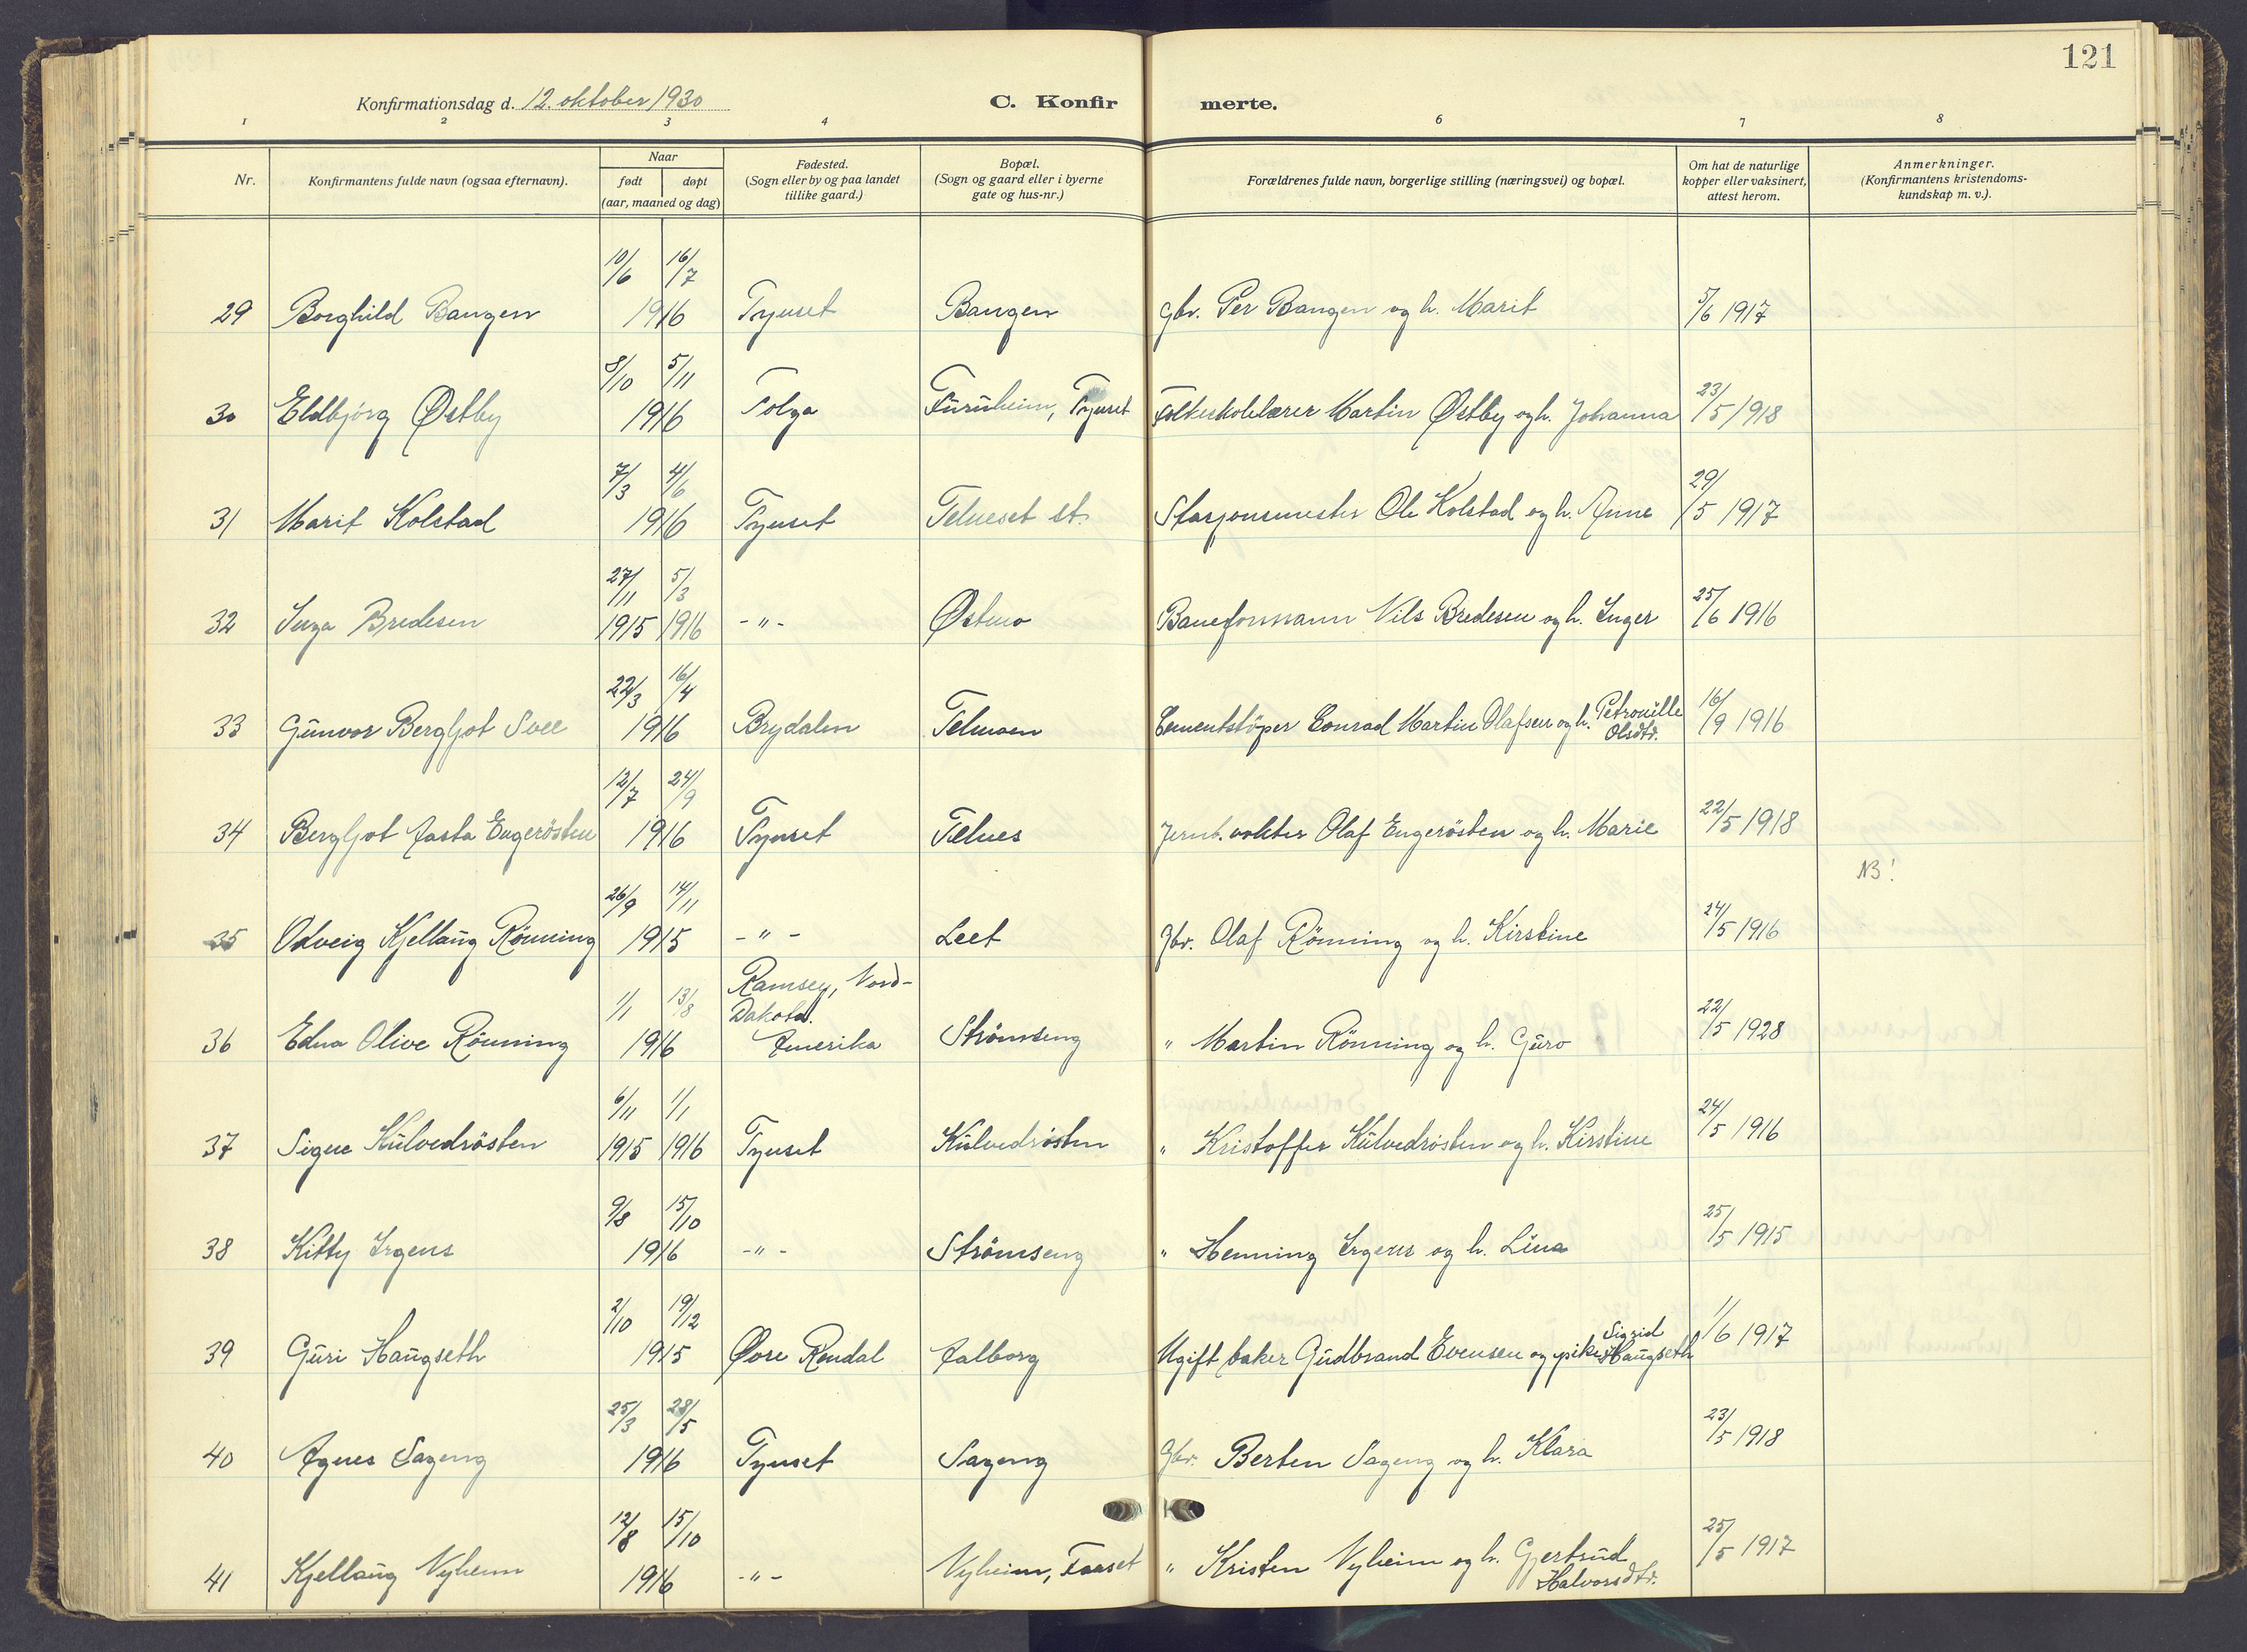 121
Konfirmationsdag d. 12. oktober 1930
C. Konfirmerte.
1 2 3 4 6 7 8
Nr.
Konfirmantens fulde navn (ogsaa efternavn).
Naar
født døpt
(aar, maaned og dag)
Fødested.
(Sogn eller by og paa landet
tillike gaard.)
Bopæl.
(Sogn og gaard eller i byerne
gate og hus-nr.)
Forældrenes fulde navn, borgerlige stilling (næringsvei) og bopæl.
Om hat de naturlige
kopper eller vaksinert,
attest herom.
Anmerkninger.
(Konfirmantens kristendoms-
kundskap m. v.).
10/6 16/7
29 Borghild Bangen 1916 Tynset Bangen Gbr. Per Bangen og h. Marit 5/6 1917
8/10 5/11
30 Eldbjörg Østby 1916 Tolga Furuheim, Tynset Folkeskolelærer Martin Østby og h. Johanna 23/5 1918
7/3 4/6
31 Marit Kolstad 1916 Tynset Telneset st. Stasjonsmester Ole Kolstad og h. Anne 29/5 1917
27/11 5/3
32 Inga Bredesen 1915 1916 -"- Østmo Baneformann Nils Bredesen og h. Inger 25/6 1916
22/3 16/4
33 Gunvor Bergljot Svee 1916 Brydalen Telmoen Cementstöper Conrad Martin Olafsen og h. Petronille Olsdtr. 16/9 1916
12/7 24/9
34 Bergljot Aasta Engerösten 1916 Tynset Telnes Jernb.vokter Olaf Engerösten og h. Marie 22/5 1918
NB!
26/9 14/11
35 Odveig Kjellaug Rönning 1915 -"- Leet Gbr. Olaf Rönning og h. Kirstine 24/5 1916
1/1 13/8 Ramsey, Nord-
Dakota.
36 Edna Olive Rönning 1916 Amerika Strömseng " Martin Rönning og h. Guro 22/5 1928
6/11 1/1
37 Signe Kulvedrösten 1915 1916 Tynset Kulvedrösten " Kristoffer Kulvedrösten og h. Kirstine 24/5 1916
9/8 15/10
38 Kitty Irgens 1916 -"- Strömseng " Henning Irgens og h. Lina 25/5 1915
2/10 19/12
39 Guri Haugseth 1915 Øvre Rendal Aalborg Ugift baker Gudbrand Evensen og pike Sigrid Haugseth 1/6 1917
25/3 28/5
40 Agnes Sageng 1916 Tynset Sageng Gbr. Berten Sageng og h. Klara 23/5 1918
12/8 15/10
41 Kjellaug Nyheim 1916 -"- Nyheim, Faaset " Kristen Nyheim og h. Gjertrud Halvorsdtr. 25/5 1917